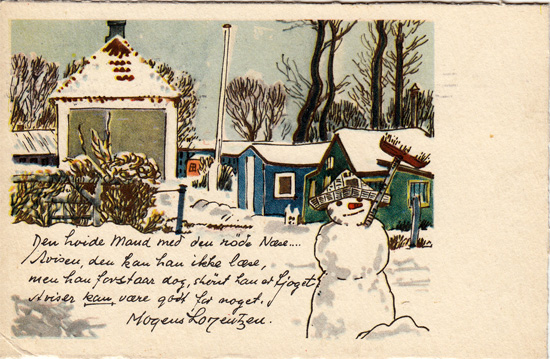 Den hvide Mand med den røde Næse....
Avisen, den kan han ikke læse,
men han forstaar dog, skönt han er fjoget
Aviser kan være godt for noget.
Mogens Lorentzen.